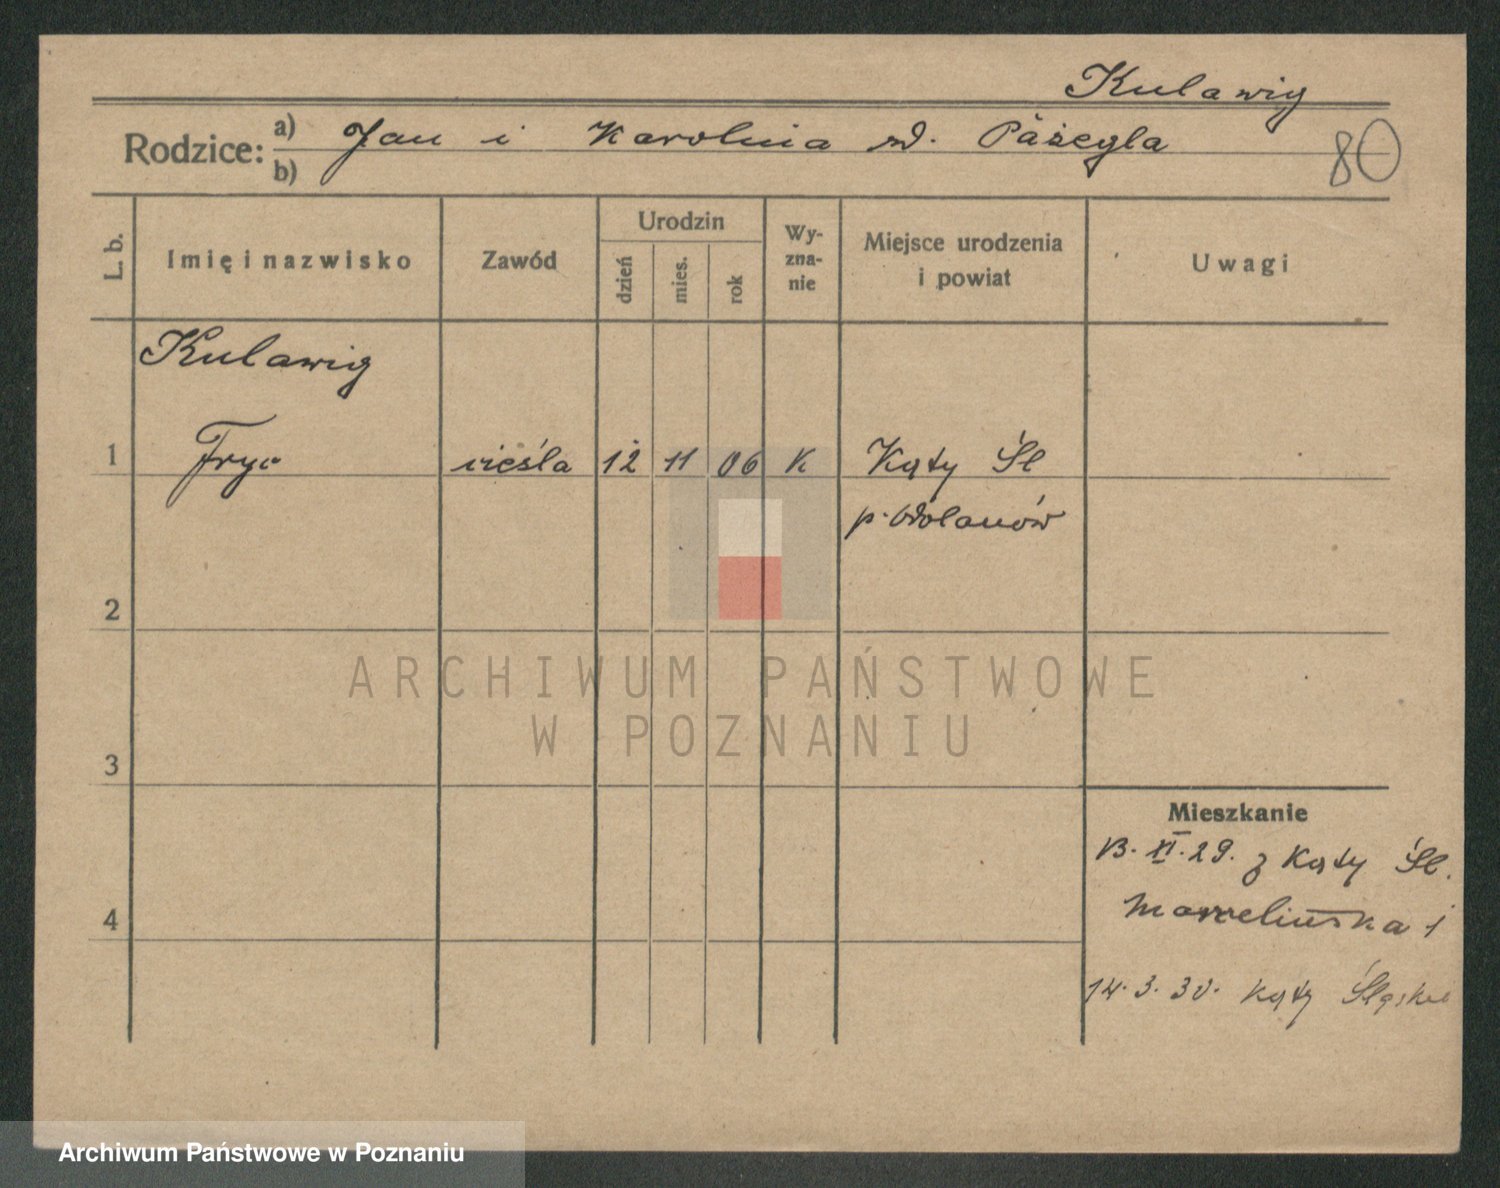 Kulawig
Rodzice: a) Jan i Karolina zd. Pażegla
b)
80
L. b.
Imię i nazwisko
Zawód
Urodzin
dzień
mies.
rok
Wy-
zna-
nie
Miejsce urodzenia
i powiat
Uwagi
Kulawig
1 Fryc cieśla 12 11 06 K Kąty Śl
p. Odolanów
2
3
4
ARCHIWUM PAŃSTWOWE
W POZNANIU
Mieszkanie
13. XI. 29. z Kąty Śl.
Marcelińska 1
14. 3. 30. Kąty Śląskie
Archiwum Państwowe w Poznaniu